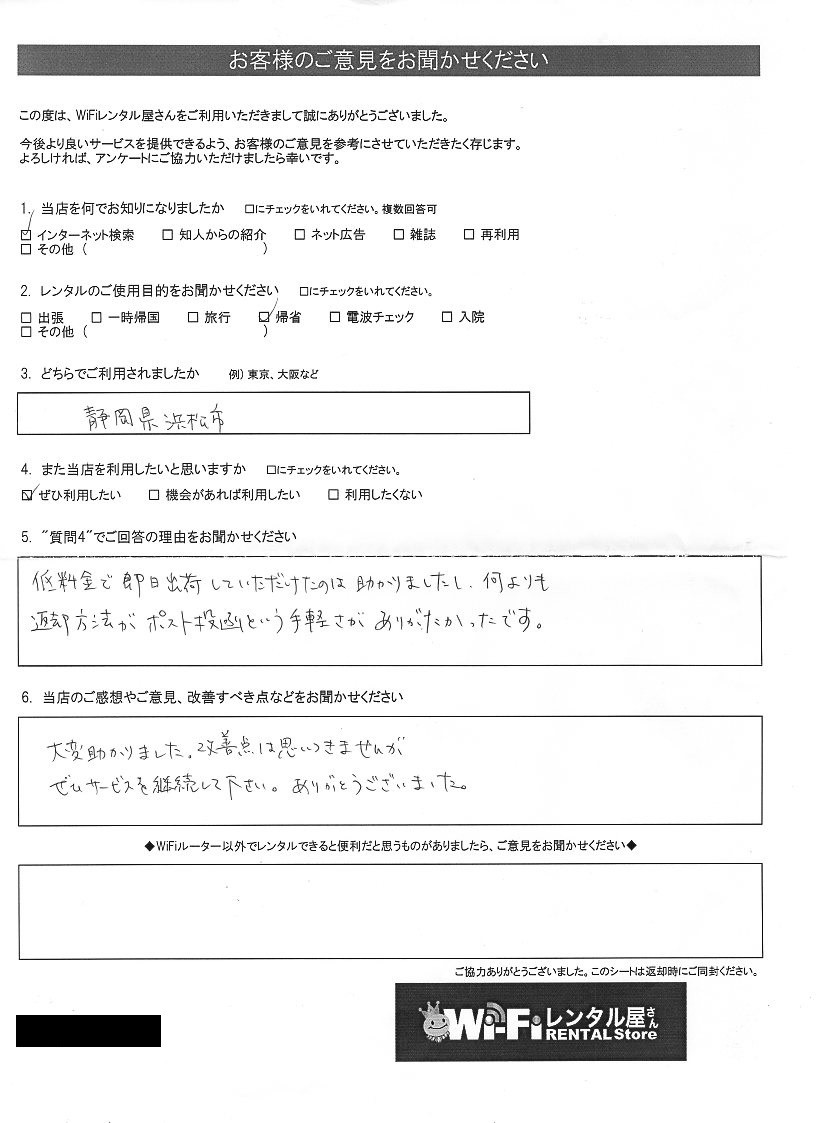 お客様のご意見をお聞かせください
この度は、WiFiレンタル屋さんをご利用いただきまして誠にありがとうございました。
今後より良いサービスを提供できるよう、お客様のご意見を参考にさせていただきたく存じます。
よろしければ、アンケートにご協力いただけましたら幸いです。
1. 当店を何でお知りになりましたか □にチェックをいれてください。複数回答可
☑ インターネット検索 □ 知人からの紹介 □ ネット広告 □ 雑誌 □ 再利用
□ その他 ( )
2. レンタルのご使用目的をお聞かせください □にチェックをいれてください。
□ 出張 □ 一時帰国 □ 旅行 ☑ 帰省 □ 電波チェック □ 入院
□ その他 ( )
3. どちらでご利用されましたか 例) 東京、大阪など
静岡県浜松市
4. また当店を利用したいと思いますか □にチェックをいれてください。
☑ ぜひ利用したい □ 機会があれば利用したい □ 利用したくない
5. "質問4"でご回答の理由をお聞かせください
低料金で即日出荷していただけたのは助かりましたし、何よりも
返却方法がポスト投函という手軽さがありがたかったです。
6. 当店のご感想やご意見、改善すべき点などをお聞かせください
大変助かりました。改善点は思いつきませんが
ぜひサービスを継続して下さい。ありがとうございました。
◆WiFiルーター以外でレンタルできると便利だと思うものがありましたら、ご意見をお聞かせください◆
ご協力ありがとうございました。このシートは返却時にご同封ください。
Wi-Fiレンタル屋さん
RENTAL Store